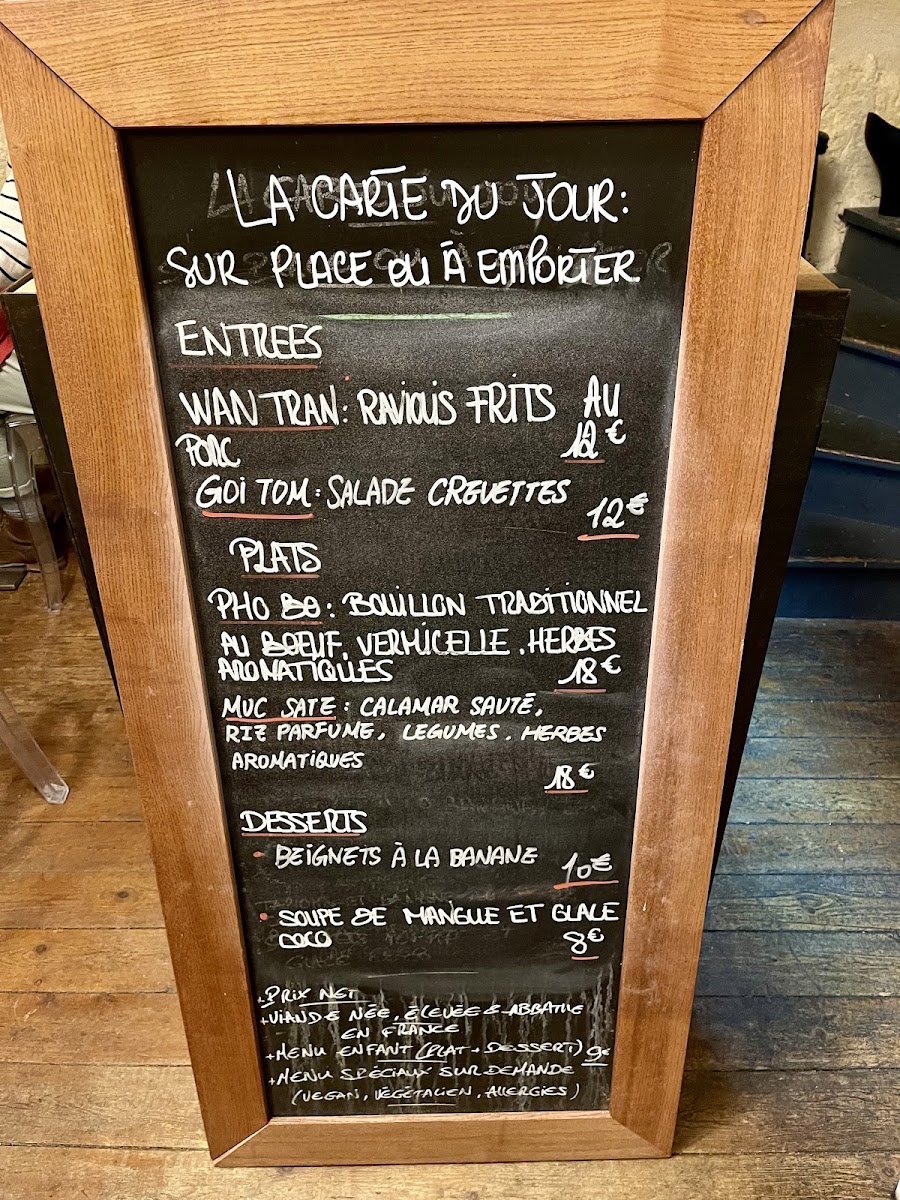 LA CARTE DU JOUR:
SUR PLACE OU À EMPORTER
ENTREES
WAN TRAN: RAVIOLIS FRITS AU
PORC 12€
GOI TOM: SALADE CREVETTES
12€
PLATS
PHO BO: BOUILLON TRADITIONNEL
AU BOEUF, VERMICELLE, HERBES
AROMATIQUES 18€
MUC SATE: CALAMAR SAUTÉ,
RIZ PARFUME, LEGUMES, HERBES
AROMATIQUES
18€
DESSERTS
• BEIGNETS À LA BANANE
10€
• SOUPE DE MANGUE ET GLACE
COCO 8€
+ PRIX NET
+ VIANDE NÉE, ÉLEVÉE & ABBATUE
EN FRANCE
+ MENU ENFANT (PLAT + DESSERT) 9€
+ MENU SPÉCIAUX SUR DEMANDE
(VEGAN, VÉGÉTALIEN, ALLERGIES)